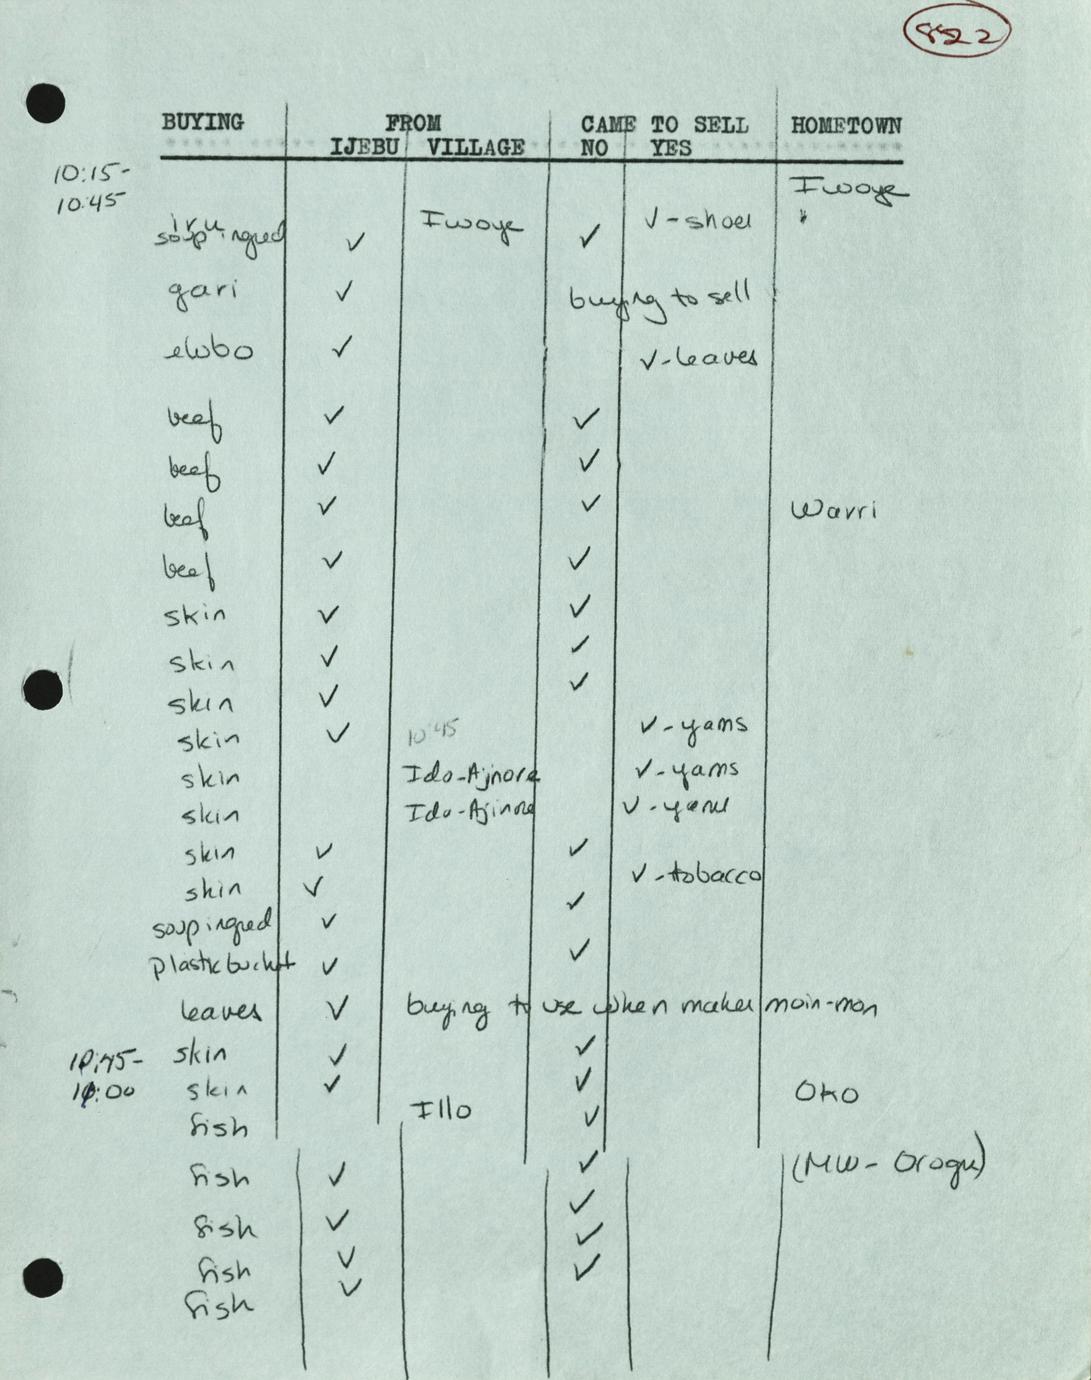 822
BUYING FROM CAME TO SELL HOMETOWN
IJEBU VILLAGE NO YES
10:15- Iwoye
10:45
iru Iwoye ✓-shoes "
soup ingred ✓ ✓
gari ✓ buying to sell
elubo ✓ ✓-leaves
beef ✓ ✓
beef ✓ ✓
beef ✓ ✓ Warri
beef ✓ ✓
skin ✓ ✓
skin ✓ ✓
skin ✓ ✓
skin ✓ 10:45 ✓-yams
skin Ido-Ajinore ✓-yams
skin Ido-Ajinore ✓-yams
skin ✓ ✓
skin ✓ ✓-tobacco
soup ingred ✓ ✓
plastic bucket ✓ ✓
leaves ✓ buying to use when makes moin-moin
10:45- skin ✓ ✓
11:00 skin ✓ ✓ Oko
fish Illo ✓
fish ✓ ✓ (MW- Orogu)
fish ✓ ✓
fish ✓ ✓
fish ✓ ✓